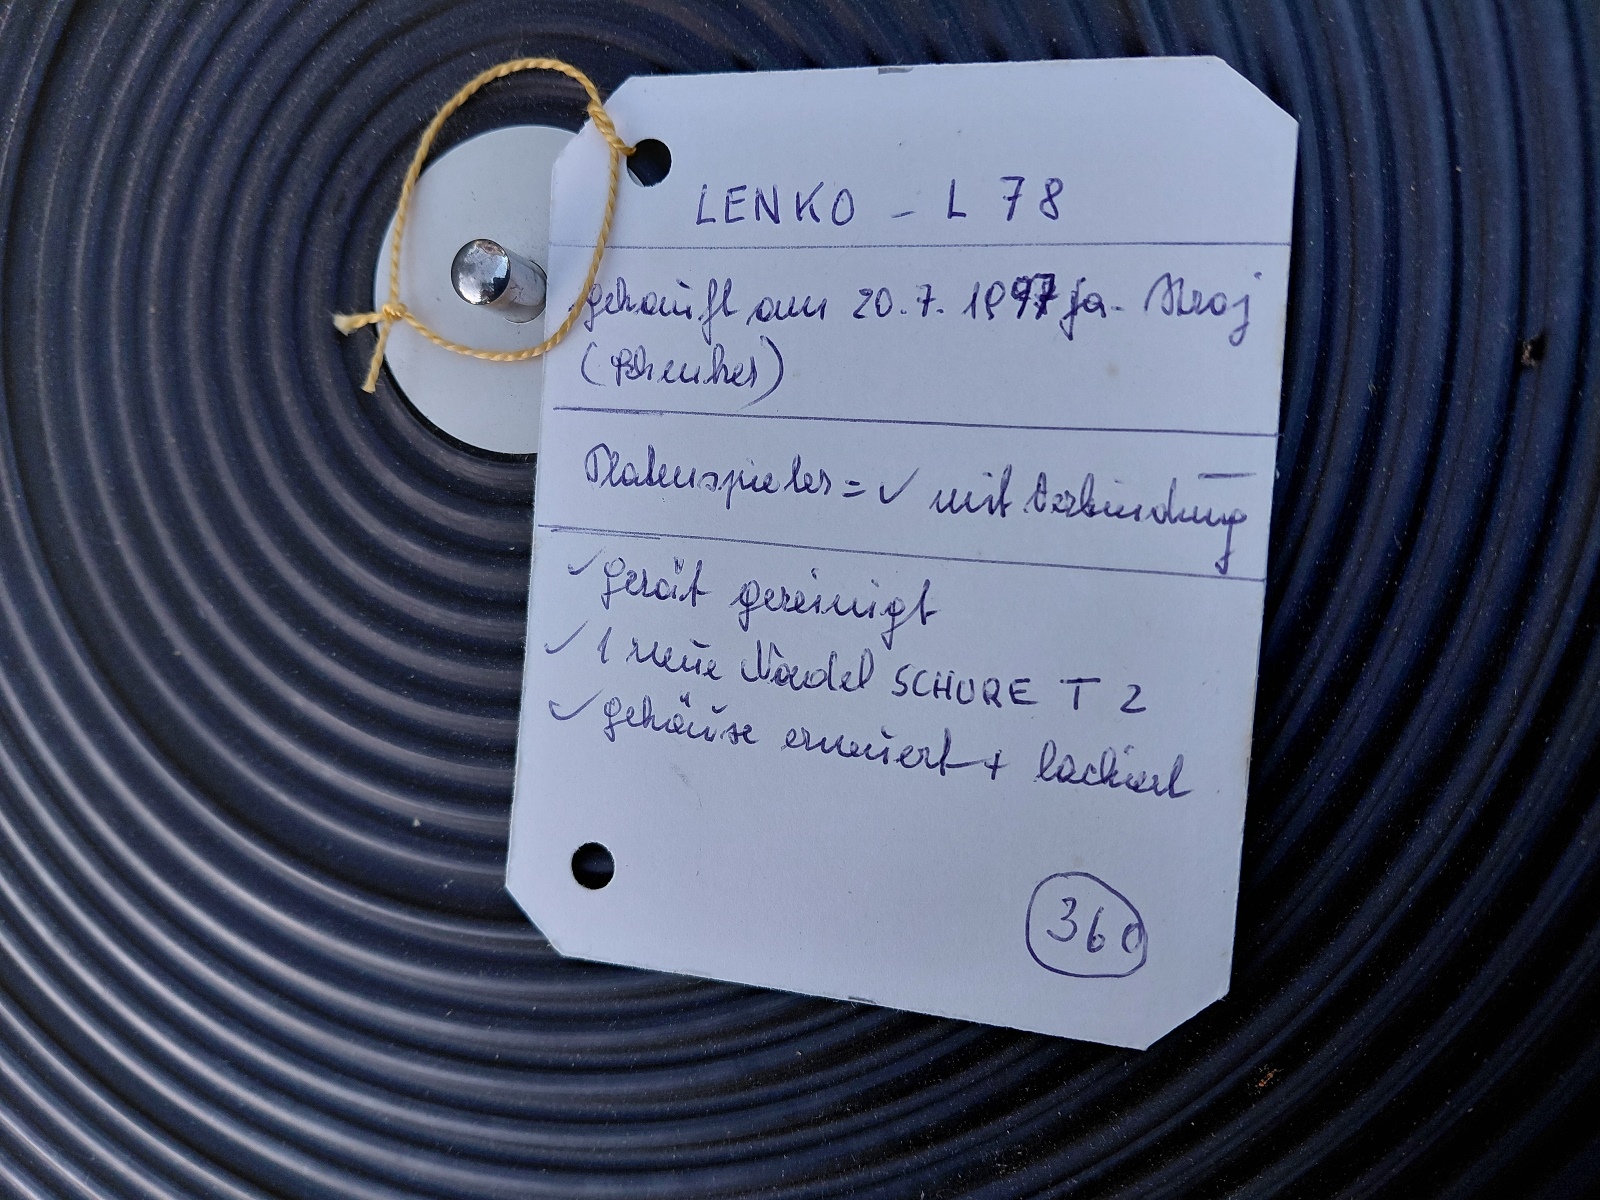 LENKO - L 78
gekauft am 20.7.1997 fa.
Platenspieler = ✓ mit Verbindung
✓ gerät gereinigt
✓ 1 neue Nadel SCHURE T 2
✓ gehäuse erneuert + lackiert
360